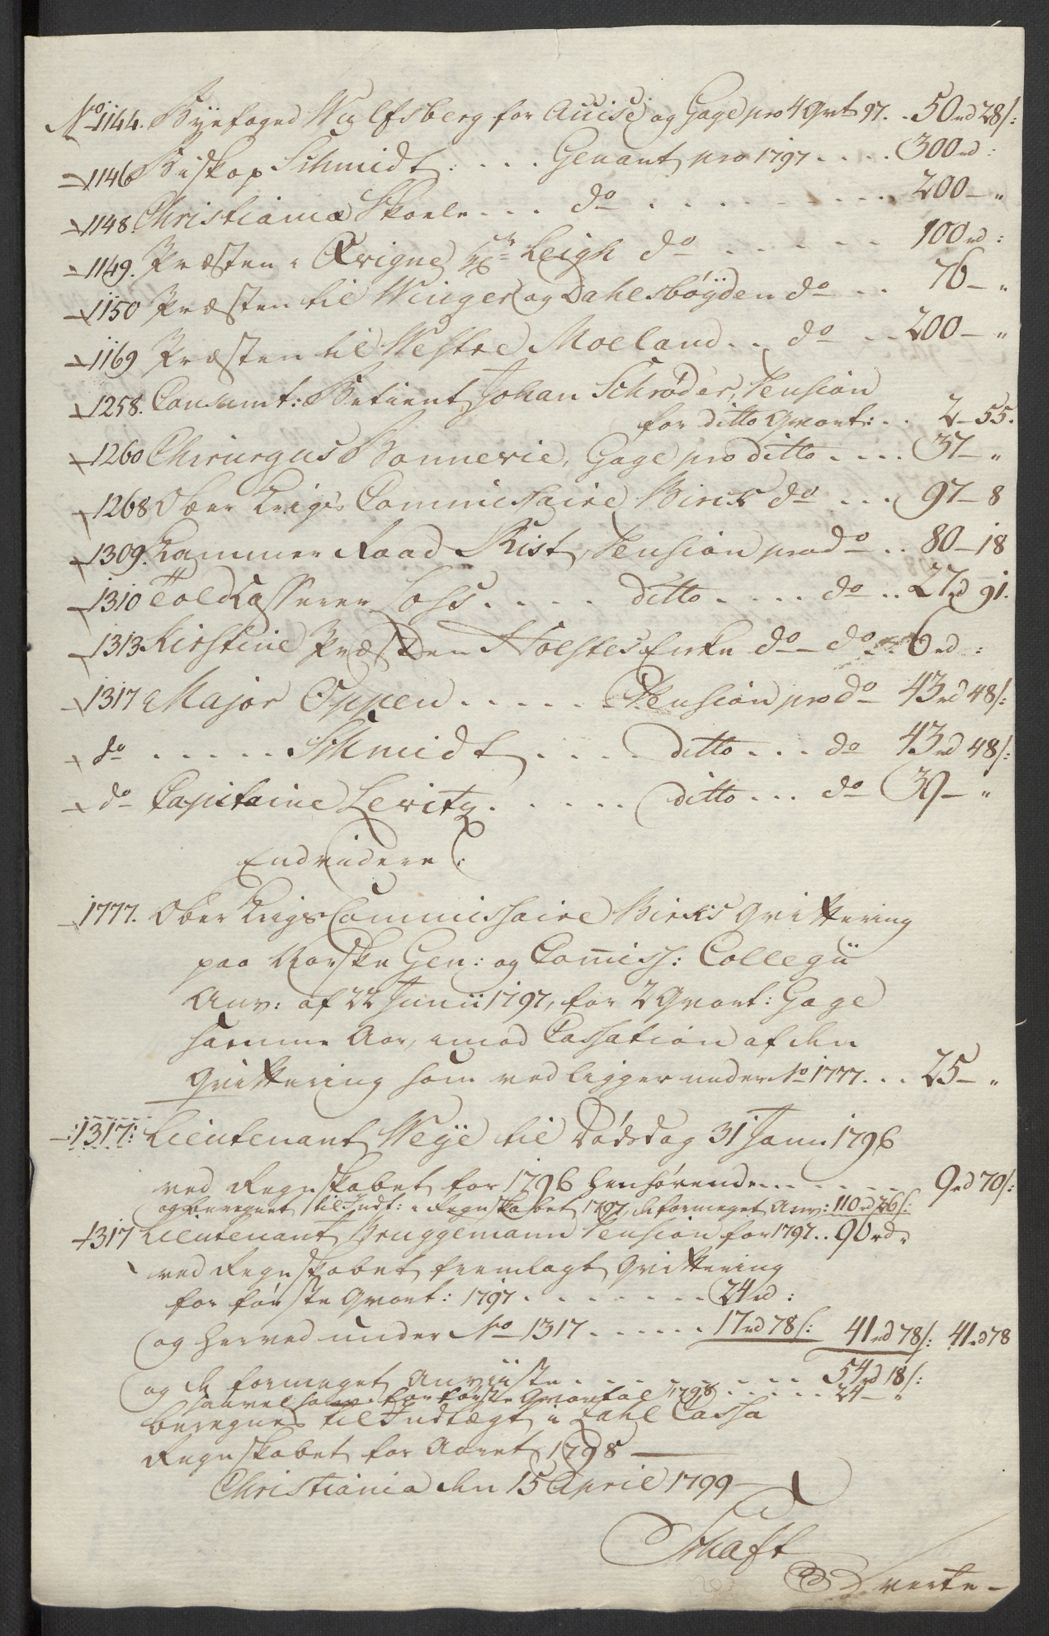 No 1144. Byefoged Wulfsberg for Accise og Gage pro 4 Qvrt 97. . 50 rd 28 s:
- 1146 Biskop Schmidt. . . . Genant pro 1797 . . . . 300 rd:
- 1148. Christiania Skoele . . . do . . . . . . . . . 200 - "
- 1149. Præsten i Qvigne Hr Leigh do . . . . . . 100 rd:
- 1150 Præsten til Winger og Dahlsbøyden do . . 76 - "
- 1169 Præsten til Westre Moeland . . do . . 200 - "
- 1258. Consumt: Betient Johan Schrøder, Pension
for ditto Qvart: . . 2 - 55.
- 1260 Chirurgus Bonnevie, Gage pro ditto . . . . 37 - "
- 1268 Ober Krigs Commissaire Birck do . . . 97 - 8
- 1309. Kammer Raad Kist, Pension pro do . . 80 - 18
- 1310 Told Casserer . . . . . ditto . . . . do . . 27 rd 91.
- 1313 Kirstine Præsten Holstes Enke do - do . . 6 rd:
- 1317 Major Oppen . . . . . . Pension pro do 43 rd 48 s:
- do . . . . . Schmidt . . . . ditto . . . do 43 rd 48 s:
- do Capitaine Levitz . . . . . . ditto . . . do 39 - "
Endvidere:
- 1777. Ober Krigs Commissaire Bircks Qvittering
paa Norske Gen: og Comiss: Collegii
Anv: af 22 Junii 1797, for 2 Qvart: Gage
samme Aar, imod Cassation af den
Qvittering som ved ligger under No 1777. . . 25 - "
- :1317: Lieutenant Weye til Dødsdag 31 Janu 1796
ved Regnskabet for 1796 henhørende . . . . . . 9 rd 70 s:
og beregnet til Indt: i Regnskabet 1797, de formeget Anv: 110 rd 26 s:
- 1317 Lieutenant Bruggemann Pension for 1797 . . 96 rd "
ved Regnskabet fremlagt Qvittering
for første Qvart: 1797 . . . . . . . . 24 rd:
og herved under No 1317 . . . . . . 17 rd 78 s: 41 rd 78 s: 41 rd 78
og de formeget Anviiste . . . . . . . . . . . 54 rd 18 s:
saavel som for første Qvartal 1798 . . . . . . 24 - "
beregnes til Indtægt i Zahl Cassa
Regnskabet for Aaret 1798 -
Christiania den 15 April 1799 -
Schaft
verte -